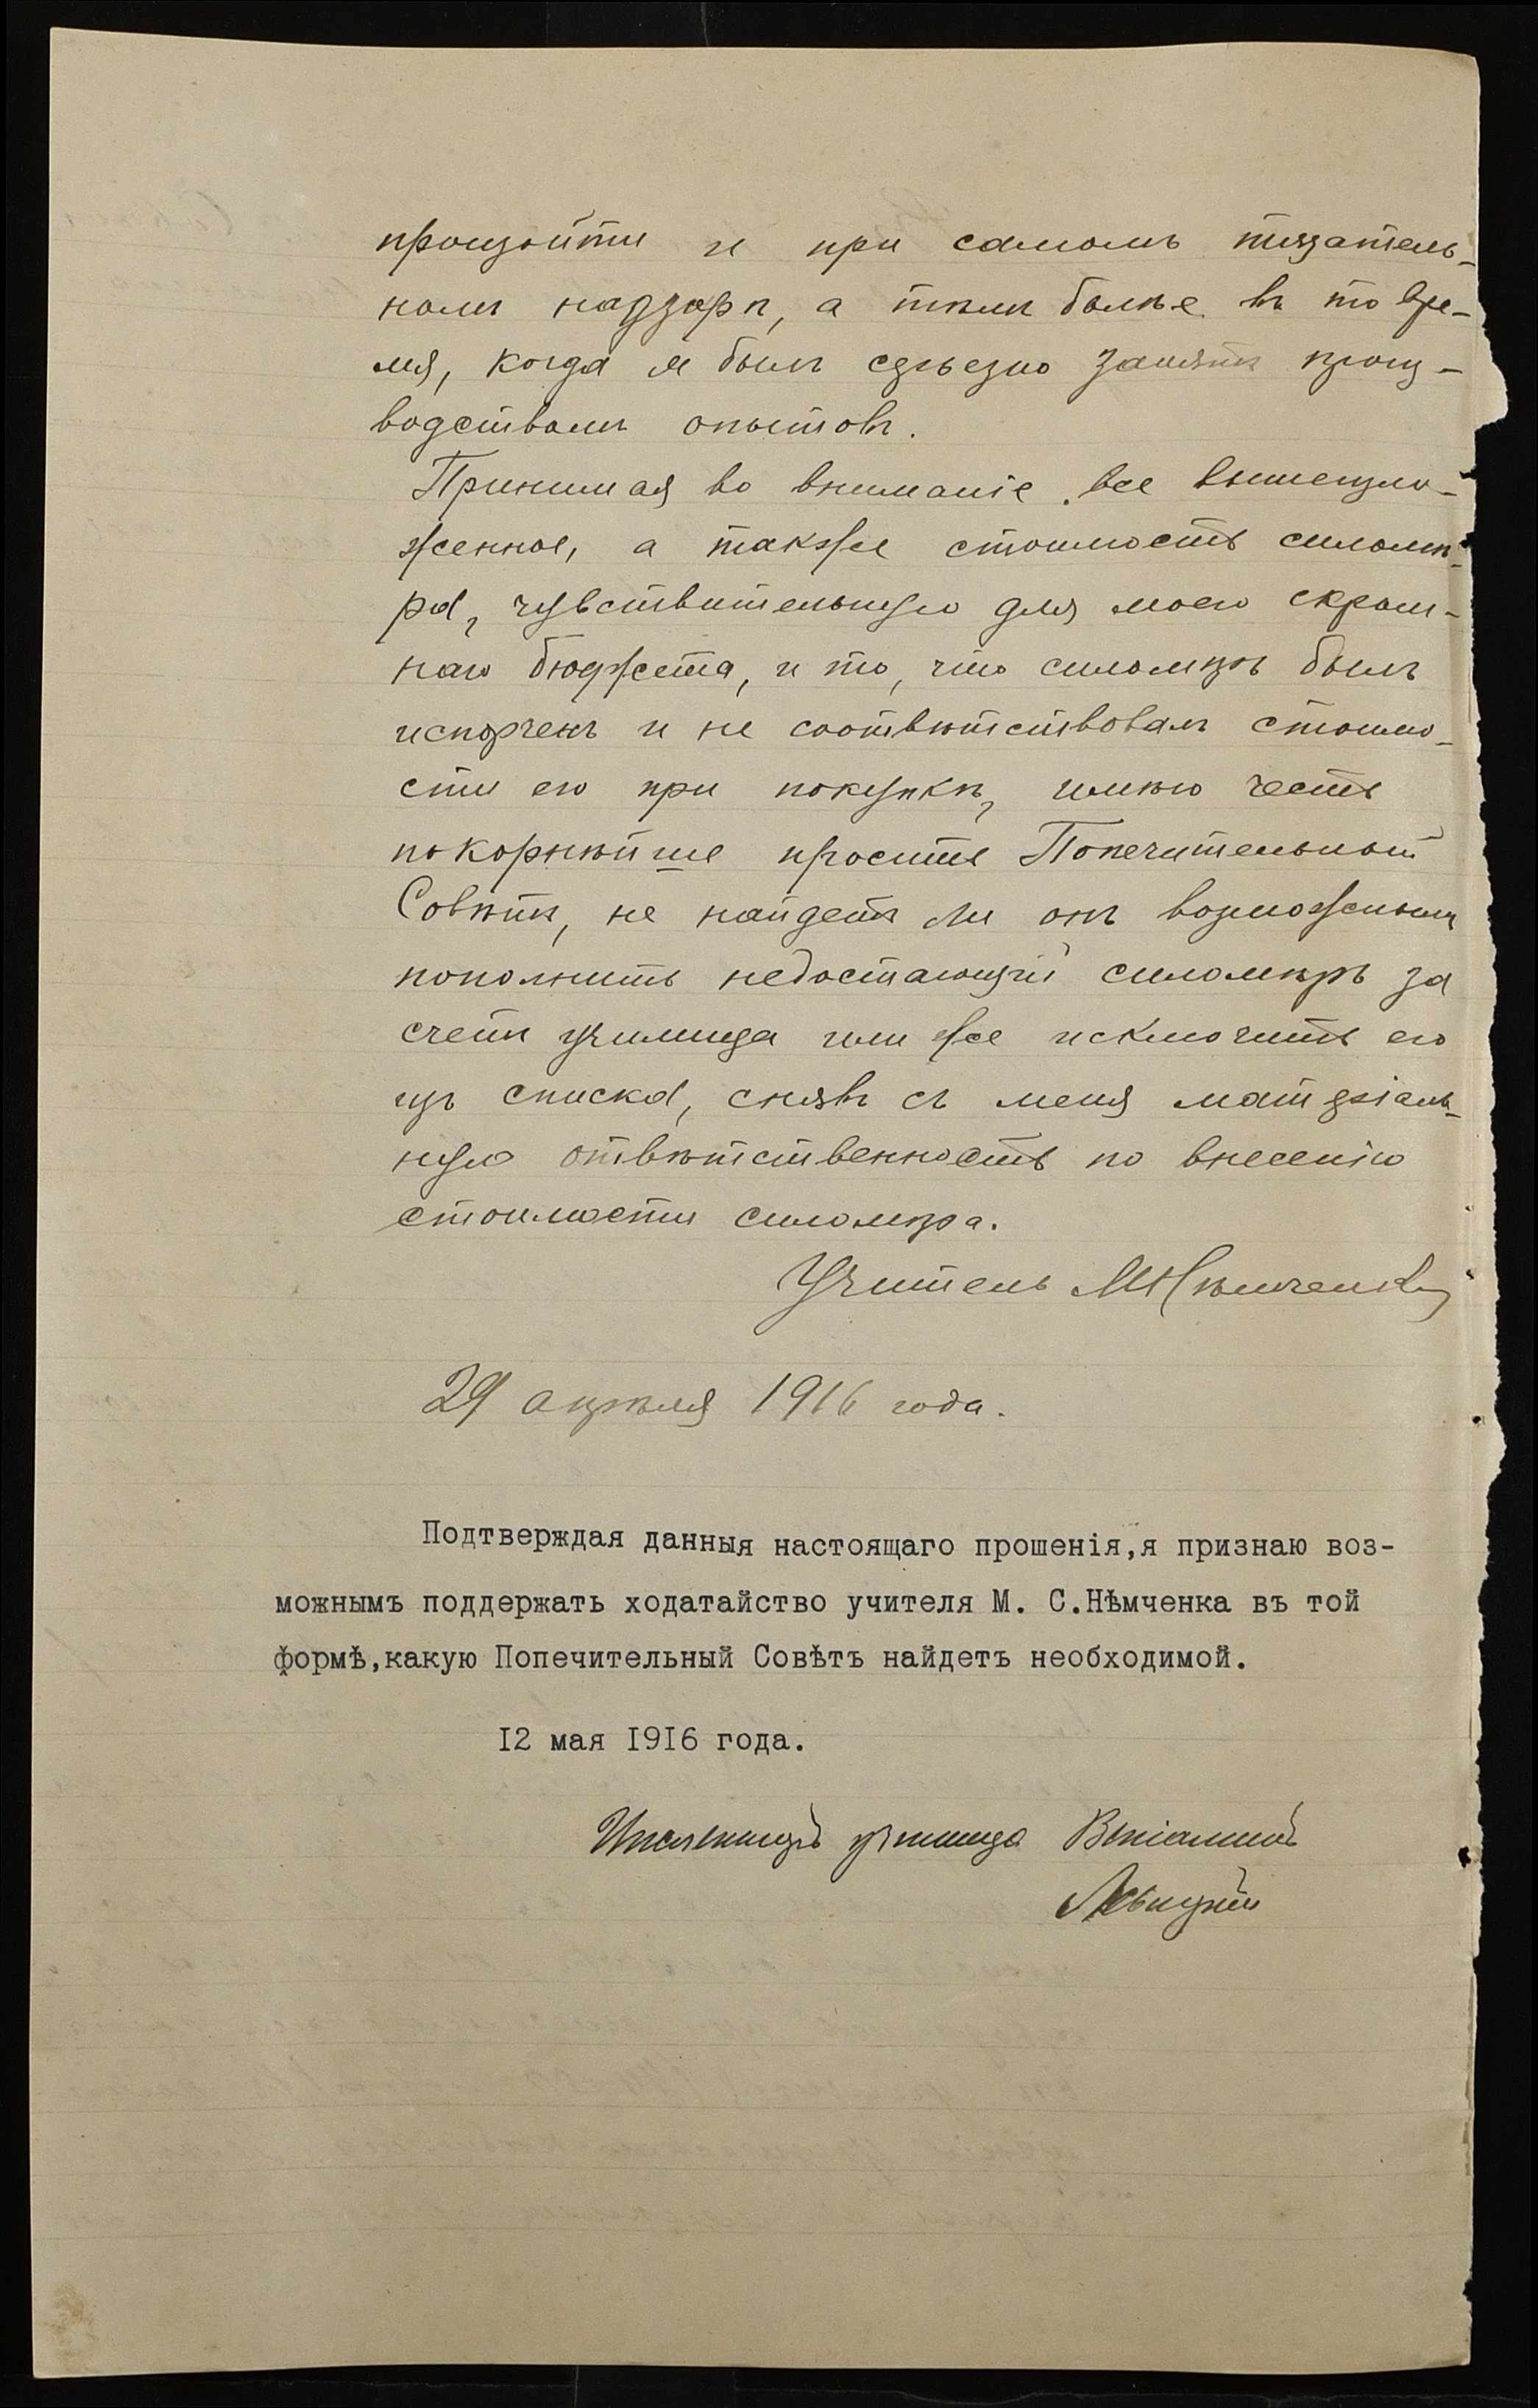 произойти и при самомъ тщатель-
номъ надзорѣ, а тѣмъ болѣе въ то вре-
мя, когда я былъ серьезно занятъ произ-
водствомъ опытовъ.
Принимая во вниманіе все вышеизло-
женное, а также стоимость силомѣ-
ра, чувствительную для моего скром-
наго бюджета, и то, что силомѣръ былъ
испорченъ и не соотвѣтствовалъ стоимо-
сти его при покупкѣ, имѣю честь
покорнѣйше просить Попечительный
Совѣтъ, не найдетъ ли онъ возможнымъ
пополнить недостающій силомѣръ за
счетъ училища или же исключить его
изъ списка, снявъ съ меня матеріаль-
ную отвѣтственность по внесенію
стоимости силомѣра.
Учитель М Нѣмченко
29 апрѣля 1916 года.
Подтверждая данныя настоящаго прошенія,я признаю воз-
можнымъ поддержать ходатайство учителя М. С.Нѣмченка въ той
формѣ,какую Попечительный Совѣтъ найдетъ необходимой.
I2 мая I9I6 года.
Инспекторъ училища Веніаминъ
Левицкій